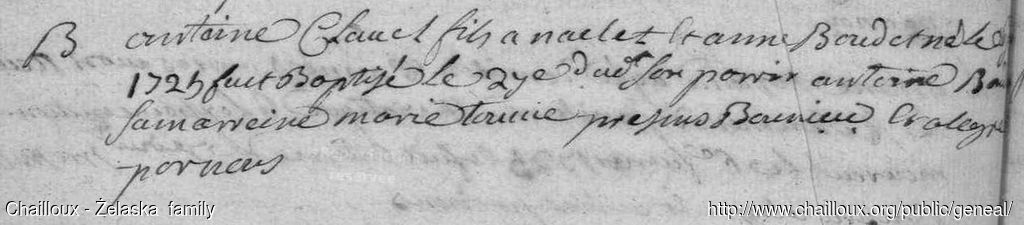 B antoine Clauel fils a naelet et anne Boudet né le
1725 fut Baptisé le 27e dudt son parrin antoine
sa marreine marie presens et
par nous
Chailloux - Želaska family
http://www.chailloux.org/public/geneal/